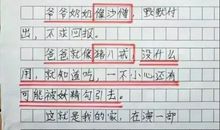 爷爷奶奶像沙僧，默默付
出，不求回报。
爸爸就像猪八戒，没什么
用，就知道吃，一不小心还有
可能被妖精勾引去。
这就是我的家，在演一部